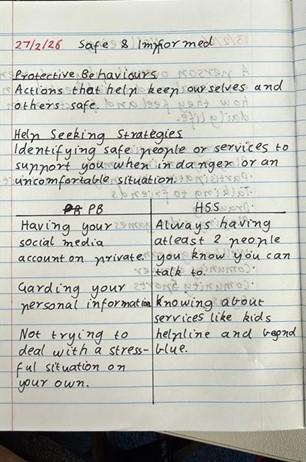 27/2/26 Safe & Informed
Protective Behaviours
Actions that help keep ourselves and
others safe.
Help Seeking Strategies
Identifying safe people or services to
support you when in danger or an
uncomfortable situation.
PB
Having your
social media
account on private.
Garding your
personal information
Not trying to
deal with a stress-
ful situation on
your own.
HSS
Always having
atleast 2 people
you know you can
talk to.
Knowing about
services like kids
helpline and beond
blue.